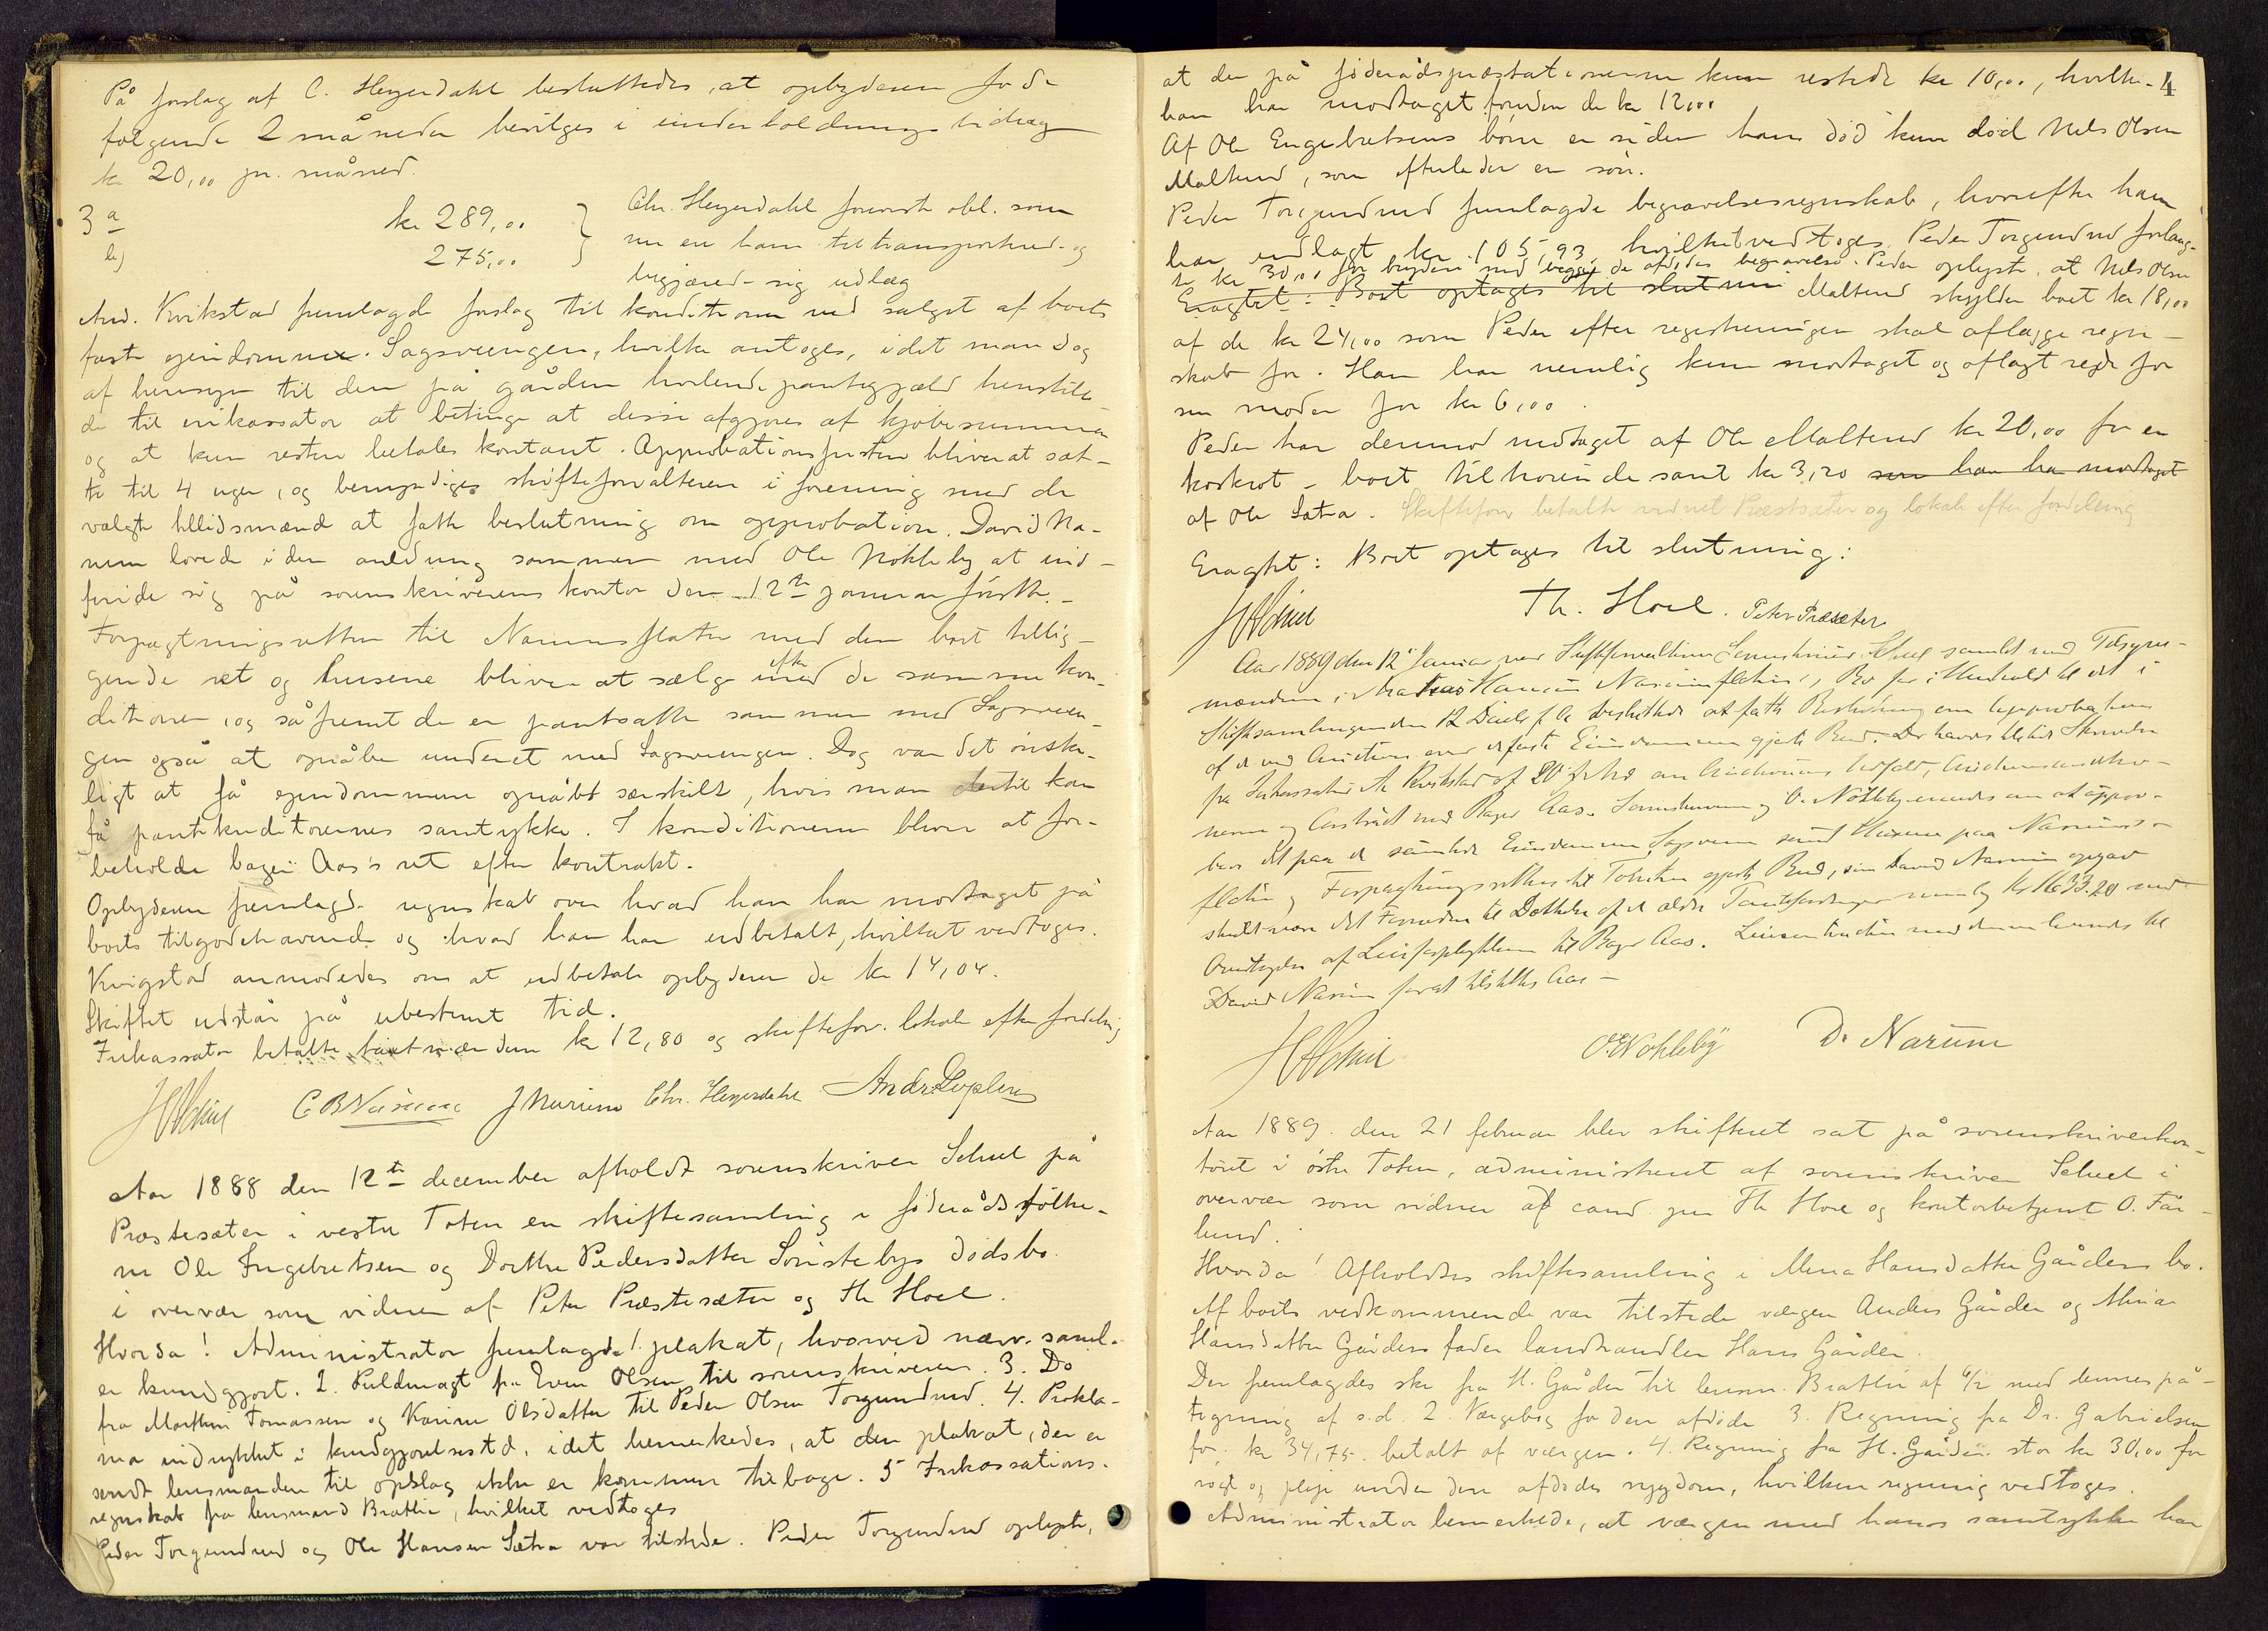 På forslag af C. Heyerdahl besluttedes, at opbyderen for de
følgende 2 måneder bevilges i underholdningsbidrag
kr 20,00 pr. måned.
3 a kr 289,00 } Chr. Heyerdahl foreviste obl. som
b) 275,00 nu er ham tiltransporteret og
begjærede sig udlæg
And. Kvikstad fremlagde forslag til konditioner ved salget af boets
faste ejendomme. Sagsveengen, hvilke antoges, idet man dog
af hensyn til den på gården hvilende pantegjæld henstille-
de til inkassator at betinge at disse afgjøres af kjøbesummen
og at kun resten betales kontant. Approbationsfristen bliver at sæt-
te til 4 uger, og bemyndiges skifteforvalteren i forening med de
valgte tillidsmænd at fatte beslutning om approbation. David Na-
rum lovede i den anledning sammen med Ole Nøkleby at ind-
finde sig på sorenskriverens kontor den 12te januar førstk.
Forpagtningsretten til Narumsflaten med den boet tillig-
gende ret og husene bliver at sælge efter de samme kon-
ditioner, og såfremt de er pantsatte sammen med Sagsveen-
gen også at opråbe underet med Sagsveengen. Dog var det ønske-
ligt at få ejendommene opråbt særskilt, hvis man dertil kan
få pantekreditorernes samtykke. I konditionerne bliver at for-
beholde bager Aas's ret efter kontrakt.
Opbyderen fremlagde regnskab over hvad han har modtaget på
boets tilgodehavende og hvad han har udbetalt, hvilket vedtoges.
Kvigstad anmodedes om at udbetale opbyderen de kr 14,04.
Skiftet udstår på ubestemt tid.
Inkassator betalte kr 12,80 og skifteforv. lokale efter fordeling
C B Narum J Narum Chr. Heyerdahl
Aar 1888 den 12te december afholdt sorenskriver Scheel på
Præstesæter i vestre Toten en skiftesamling i føderådsfolke-
ne Ole Ingebretsen og Dorthe Pedersdatter Sønstebys dødsbo.
i overvær som vidner af Peter Præstesæter og Th Hoel.
Hvorda! Administrator fremlagde 1. plakat, hvorved nærv. saml.
er kundgjort. 2. Fuldmagt fra Even Olsen til sorenskriveren. 3. Do
fra Marthin Tomassen og Karine Olsdatter til Peder Olsen Torgundrud. 4. Prokla-
ma indrykket i kundgjørelsestd. idet bemerkedes, at den plakat, der er
sendt lensmanden til opslag ikke er kommen tilbage. 5 Inkassations-
regnskab fra lensmand Bratlie, hvilket vedtoges
Peder Torgundrud og Ole Hansen Sætra var tilstede. Peder Torgundrud oplyste,
4
at der på føderådspræstationerne kun restede kr 10,00, hvilke
han har modtaget foruden de kr 12,00
Af Ole Engebretsens børn er siden hans død kun død Nels Olsen
Malterud, som efterlader en søn.
Peder Torgundrud fremlagde begravelsesregnskab, hvorefter han
har udlagt kr 105,93, hvilket vedtoges. Peder Torgundrud forlang-
te kr 30,00 for bryderi med begge de afdødes begravelse. Peder oplyste, at Nels Olsen
Eragtet: Boet optages til slutni Malterud skylder boet kr 18,00
af de kr 24,00 som Peder efter registreringen skal aflægge regn-
skab for. Han har nemlig kun modtaget og aflagt rede for
sin moder for kr 6,00.
Peder har derimod modtaget af Ole Malterud kr 20,00 for en
boet tilhørende samt kr 3,20 som han har modtaget
af Ole Sætra. Skifteforv betalte vidnet Præstsæter og lokale efter fordeling
Eragtet: Boet optages til slutning:
Th. Hoel. Peter Præsæter
Aar 1889 den 12 Januar var Skifteforvalteren Sorenskriver Scheel samlet med Tilsyns-
mændene i Hansen Narumsflatens Bo for i Henhold til det i
Skiftesamlingen den 12 Decbr f. A. besluttede at fatte Beslutning om Approbation
af det ved Auction over de faste Eiendomme gjorte Bud. Der havdes
fra Inkassator A. Kvikstad af 20 om Auctionens Udfald, Auctions
og med Bager Aas. Sorenskriveren og O. Nøkleby enedes om at appro-
bere det paa de samlede Eiendomme, Sagsveen samt Husene paa Narums-
flaten og Forpagtningsretten til gjorte Bud, som David Narum opgav
skulde være det fornødne til Dækkelse af de ældre nemlig Kr 1633.20 med
Overtagelse af til Bager Aas.
David Narum
O. Nøkleby D. Narum
Aar 1889. den 21 februar blev skifteret sat på sorenskriverkon-
toret i østre Toten, administreret af sorenskriver Scheel i
overvær som vidner af cand jur Th Hoel og kontorbetjent O. Får-
lund.
Hvorda! Afholdtes skiftesamling i Mina Hansdatter Gårders bo.
Af boets vedkommende var tilstede værgen Anders Gårder og Mina
Hansdatter Gårders fader landhandler Hans Gårder.
Der fremlagdes skr fra H. Gårder til lensm. Bratlie af 6/2 med dennes på-
tegning af s.d. 2. Værgebog for den afdøde 3. Regning fra Dr. Gabrielsen
for kr 34,75. betalt af værgen. 4. Regning fra H. Gårder stor kr 30,00 for
røgt og pleje under den afdødes sygdom, hvilken regning vedtoges.
Administrator bemerkede, at værgen med hans samtykke har